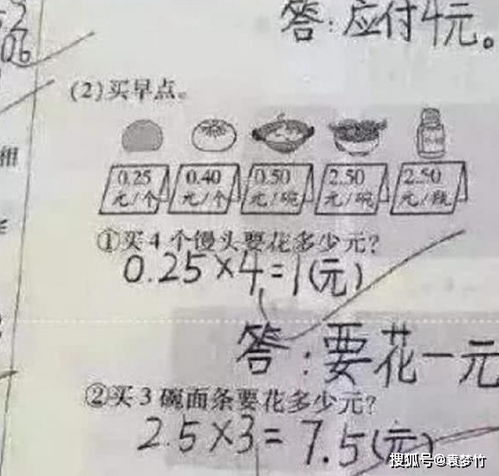 06
答:应付4元。
(2)买早点。
0.25 0.40 0.50 2.50 2.50
元/个 元/个 元/碗 元/碗 元/瓶
①买4个馒头要花多少元?
0.25×4=1(元)
答:要花一元
②买3碗面条要花多少元?
2.5×3=7.5(元)
搜狐号@袁梦竹